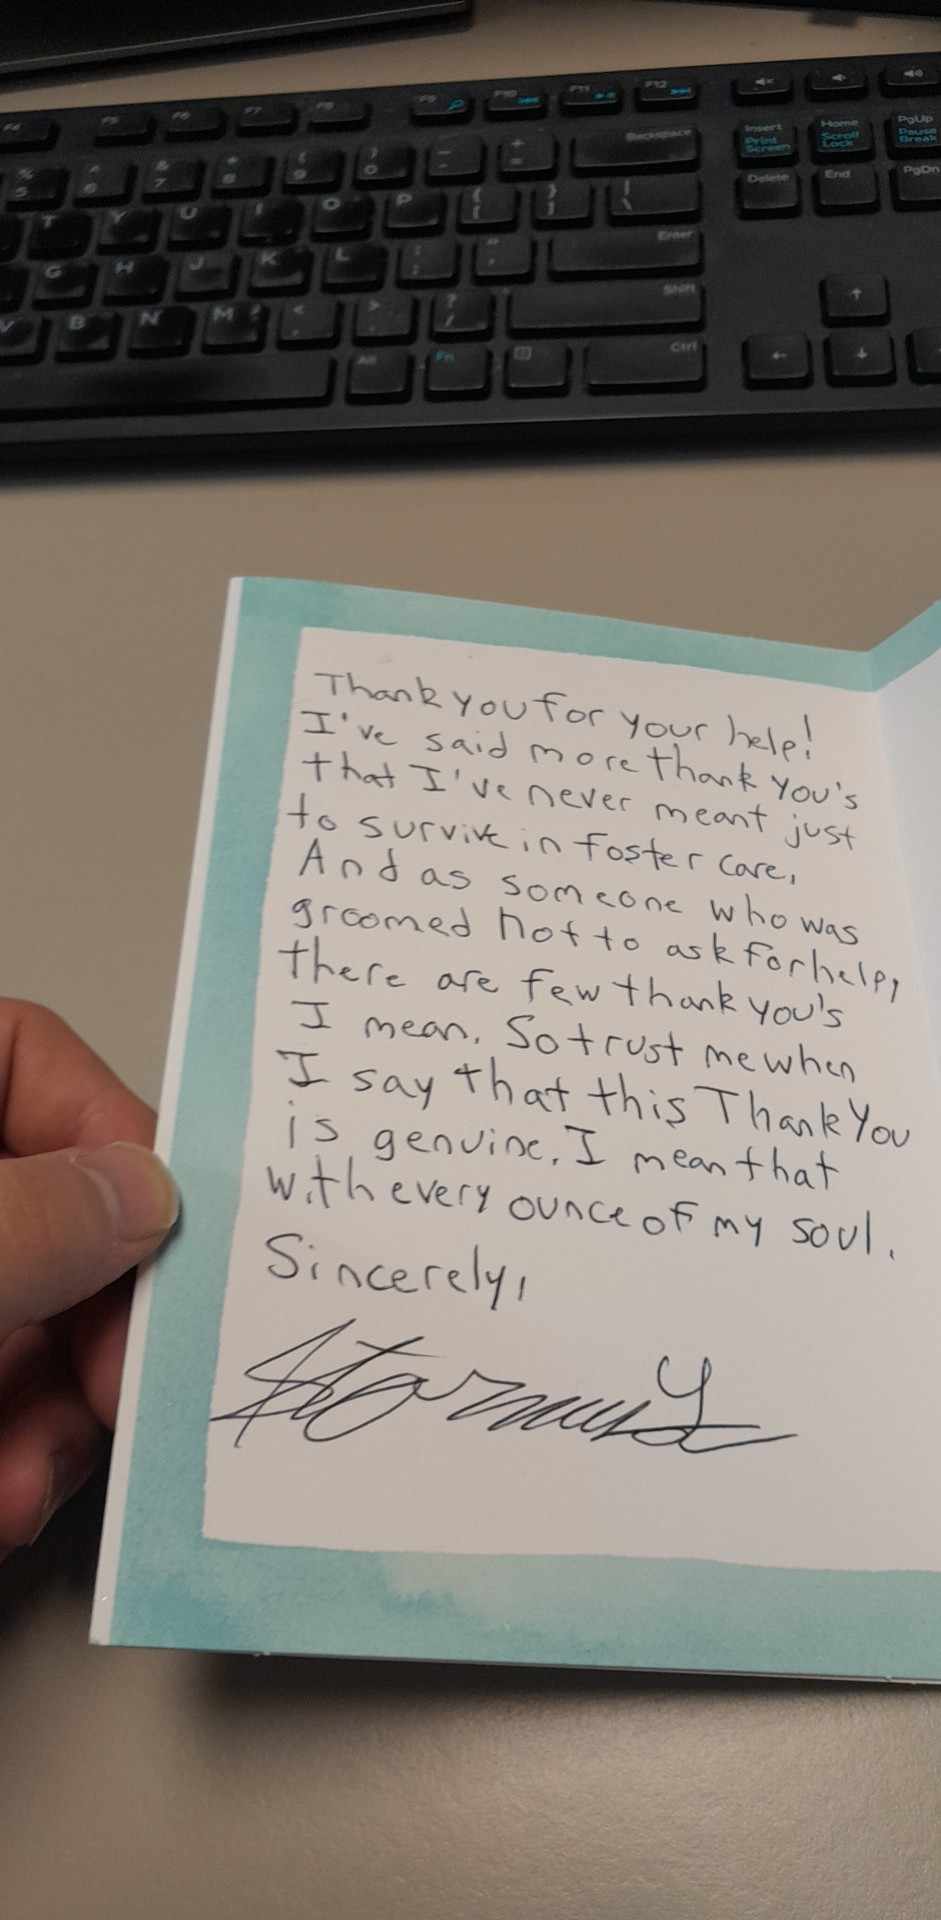 F4 F5 F6 F7 F8 F9 F10 F11 F12
% 5 ^ 6 & 7 * 8 ( 9 ) 0 _ - + = Backspace Insert Print Screen Home Scroll Lock PgUp Pause Break
T Y U I O P { [ } ] | \ Delete End PgDn
G H J K L : ; " ' Enter
V B N M < , > . ? / Shift ↑
Alt Fn Ctrl ← ↓
Thank you for your help!
I've said more thank you's
that I've never meant just
to survive in foster care.
And as someone who was
groomed not to ask for help,
there are few thank you's
I mean. So trust me when
I say that this Thank You
is genuine. I mean that
with every ounce of my soul.
Sincerely,
Stormy